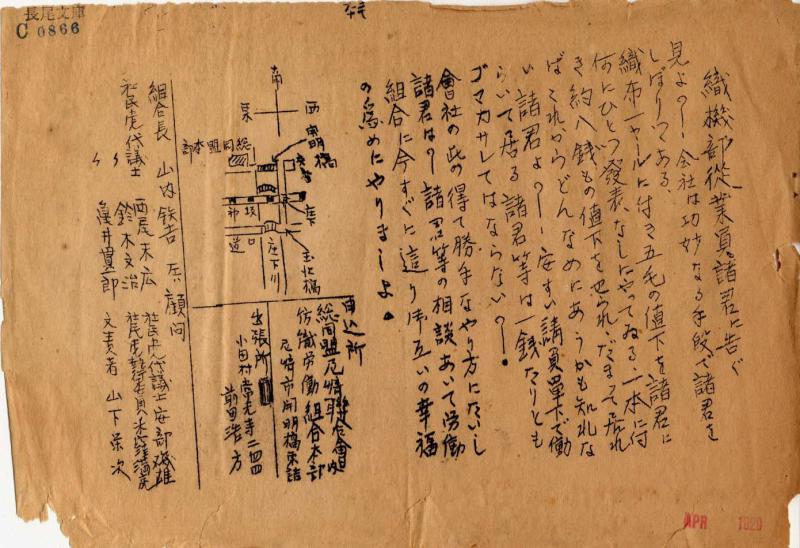 長尾文庫
C 0866
織機部從業員諸君に告ぐ
見よ〱！会社は功妙なる手段で諸君を
しぼりつゝある、
織布一ヤールに付き五毛の値下を諸君に
何にひとつ發表なしにやってゐる一本に付
き約八銭もの値下をせられだまって居れ
ばこれからどんなめにあうかも知れな
い 諸君よ〱！安すい請負單下で働
らいて居る諸君等は一銭たりとも
ゴマカサレてはならないの！
會社の此の得て勝手なやり方にたいし
諸君は〱！諸君等の相談あいて労働
組合に今すぐに這り御互いの幸福
の為めにやりましよ。
南
西
東
開明橋
総同盟本部
玉北橋
庄下川
申込所
総同盟尼崎聯合會内
紡織労働組合本部
尼崎市開明橋東詰
出張所
小田村常光寺二四四
前田浩方
組合長 山内鉄吉
顧問
社民党代議士 西尾末広
鈴木文治
亀井貫一郎
社民党代議士安部磯雄
社民党執行委員米窪満亮
文責者 山下栄次
APR 1929